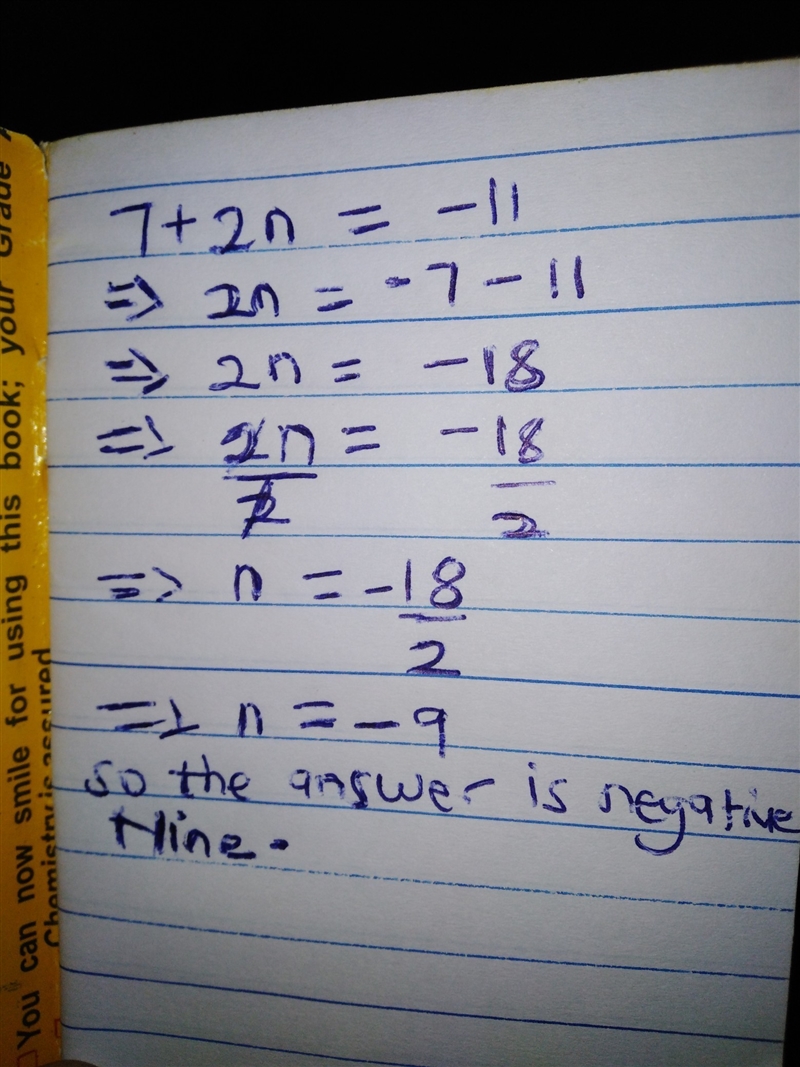 7+2n = -11
=> 2n = -7-11
=> 2n = -18
=> 2n/2 = -18/2
=> n = -18/2
=> n = -9
so the answer is negative
Nine.
You can now smile for using this book; your Grade
Chemistry is assured